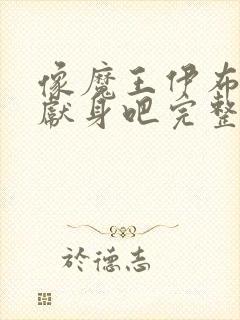 像魔王伊布
献身吧完整
於德志